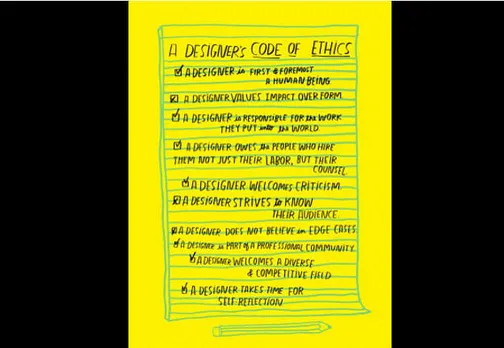 A DESIGNER'S CODE OF ETHICS
A DESIGNER is FIRST & FOREMOST
A HUMAN BEING.
A DESIGNER VALUES IMPACT OVER FORM.
A DESIGNER is RESPONSIBLE FOR the WORK
THEY PUT into the WORLD.
A DESIGNER OWES the PEOPLE WHO HIRE
THEM NOT JUST THEIR LABOR, BUT THEIR
COUNSEL.
A DESIGNER WELCOMES CRITICISM.
A DESIGNER STRIVES to KNOW
THEIR AUDIENCE.
A DESIGNER DOES NOT BELIEVE in EDGE CASES.
A DESIGNER is PART of A PROFESSIONAL COMMUNITY.
A DESIGNER WELCOMES A DIVERSE
& COMPETITIVE FIELD
A DESIGNER TAKES TIME FOR
SELF REFLECTION